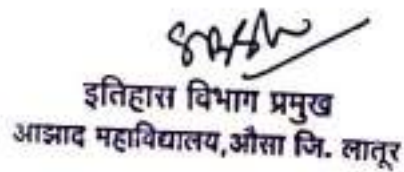 इतिहास विभाग प्रमुख
आझाद महाविद्यालय,औसा जि. लातूर